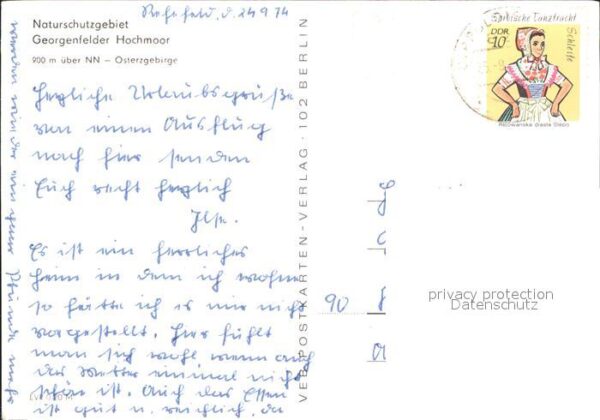 Naturschutzgebiet
Georgenfelder Hochmoor
900 m über NN – Osterzgebirge
Rehefeld, d. 24.9.74
Herzliche Urlaubsgrüße
von einen Ausflug
nach hier senden
Euch recht herzlich
Ilse.
Es ist ein herrliches
Heim in dem ich wohne
so hätte ich es mir nicht
vorgestellt. Hier fühlt
man sich wohl wenn auch
das Wetter einmal nicht
schön ist. Auch das Essen
ist gut u. reichlich, da
werden wir der ein Pfunde mehr
VEB POSTKARTEN-VERLAG · 102 BERLIN
90
Sorbische Tanztracht
Schleife
DDR
10
privacy protection
Datenschutz